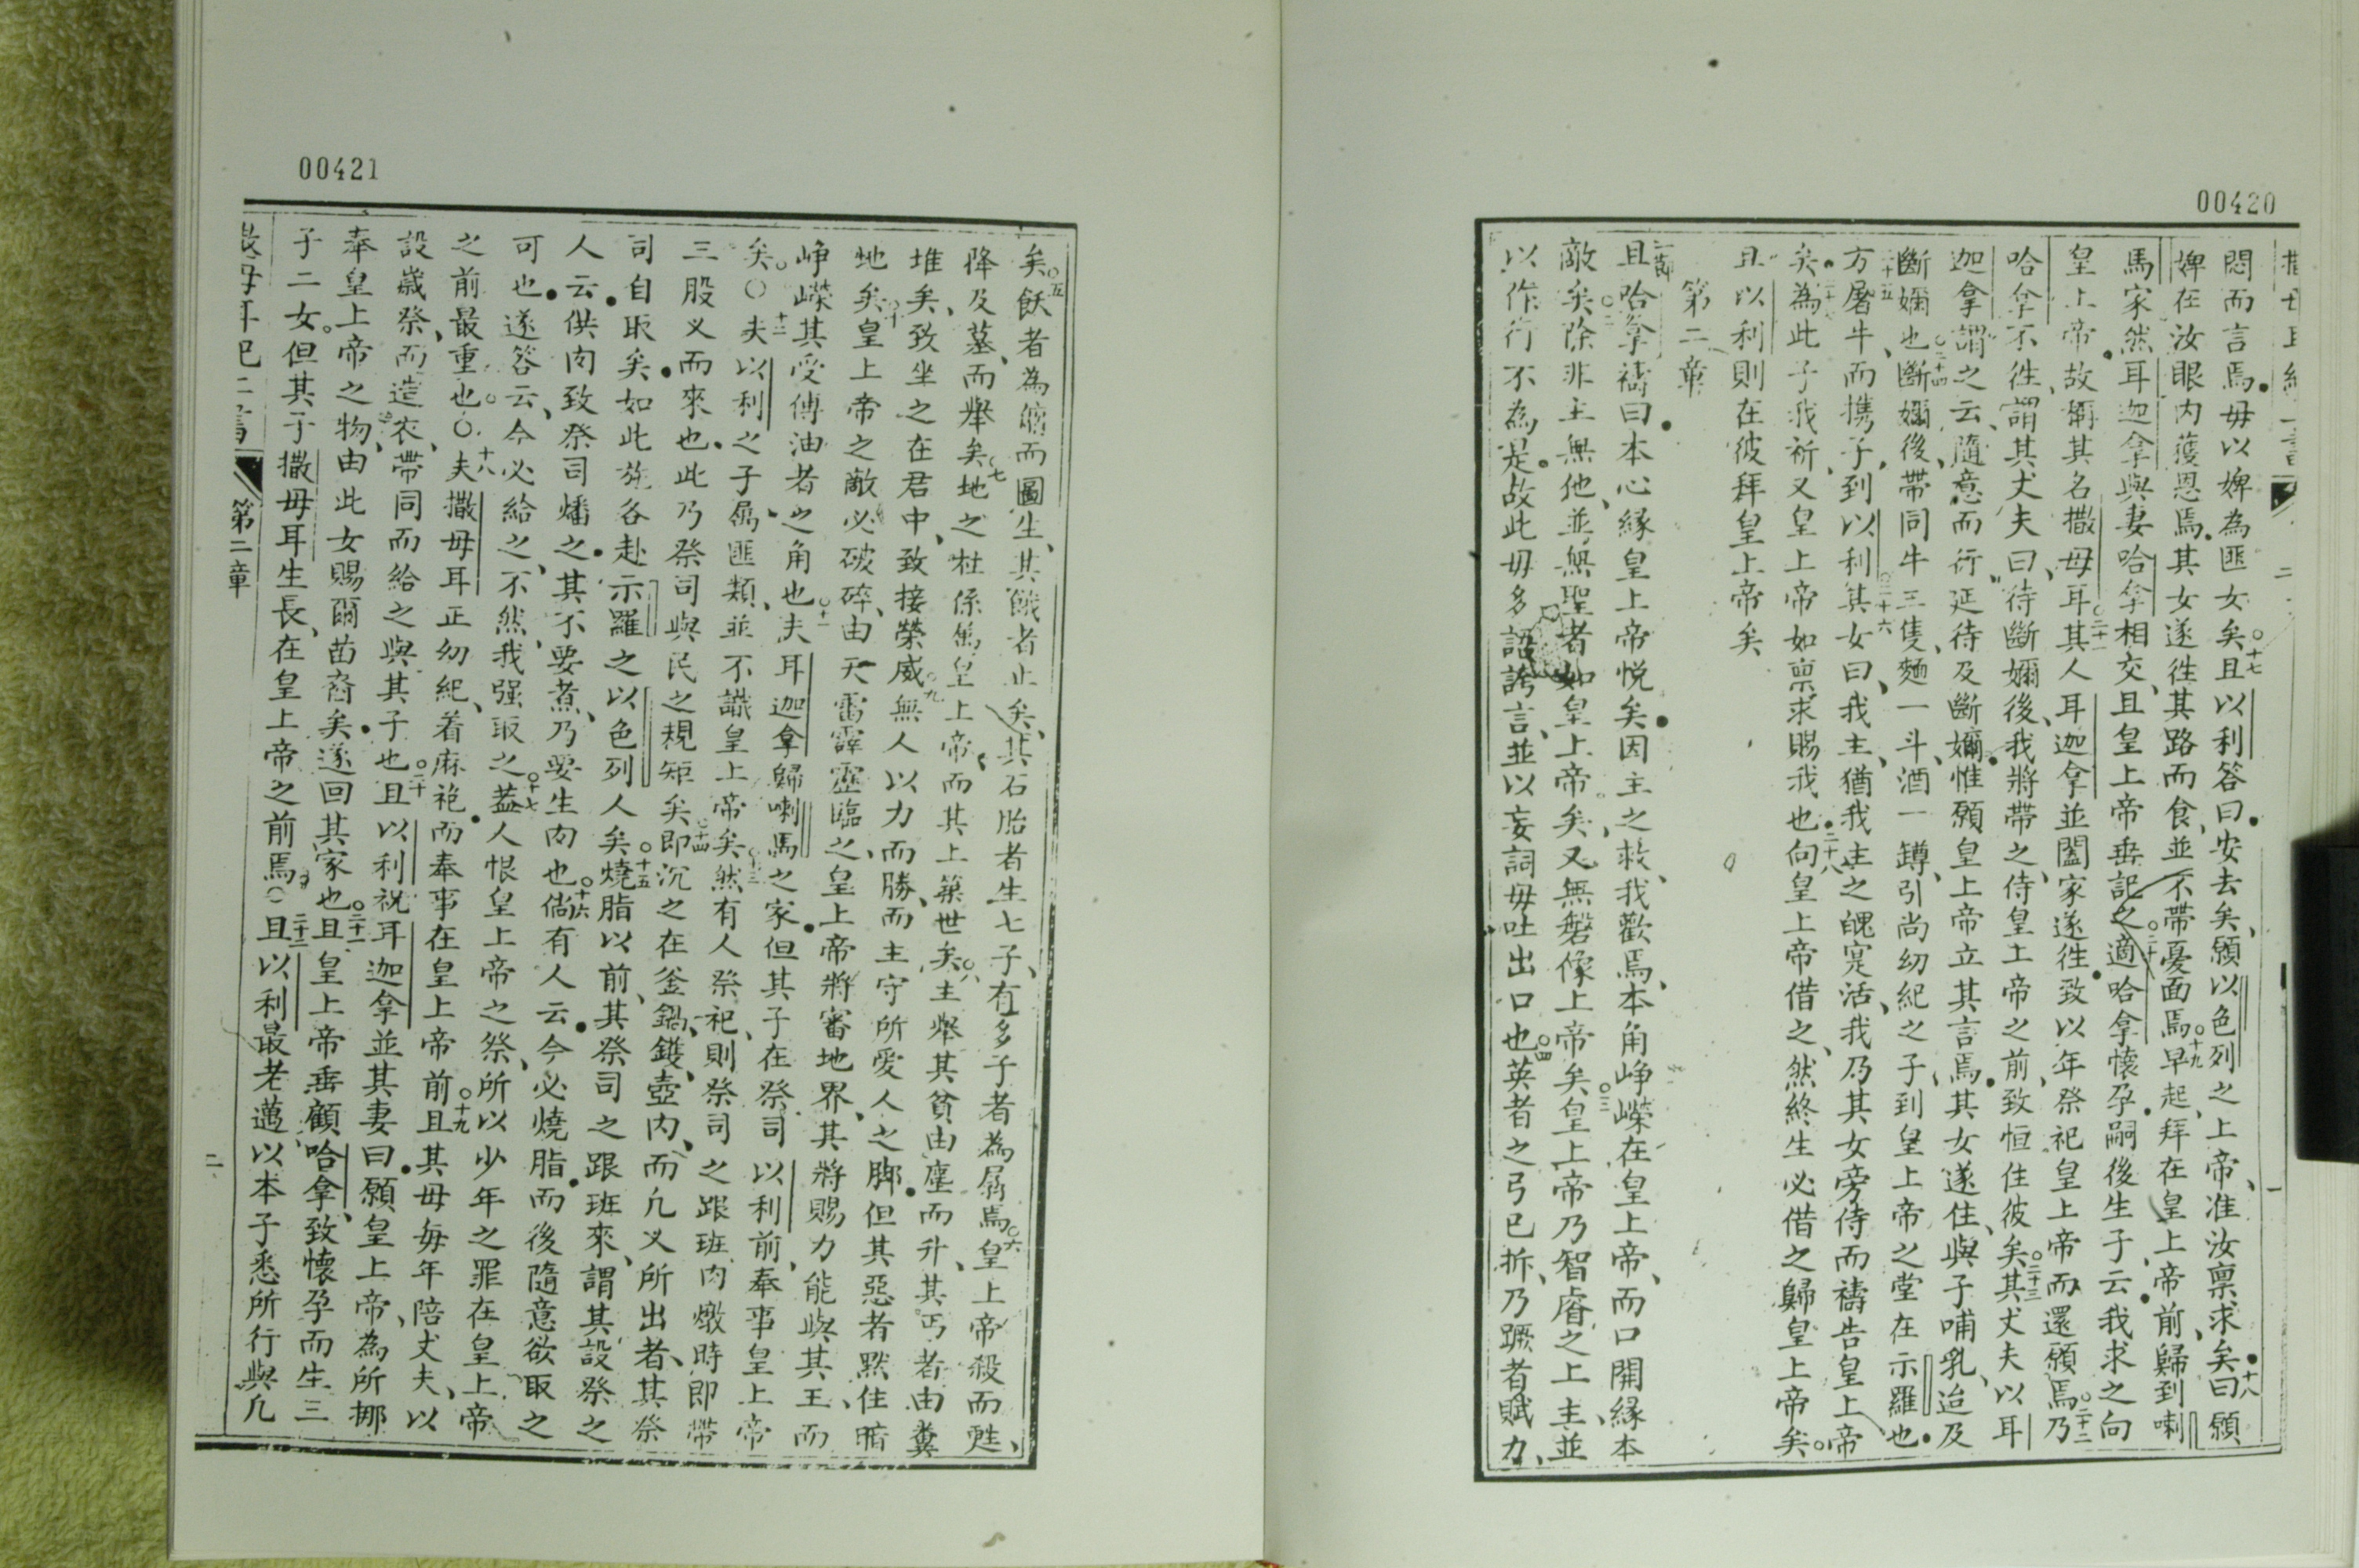 00420
悶而言焉。毋以婢為匪女矣○十七且以利答曰。安去矣、願以色列之上帝、准汝禀求、矣。○十八曰願
婢在汝眼內獲恩焉。其女遂徃其路而食、並不帶憂面焉○十九早起、拜在皇上帝前、歸到喇
馬家然耳迦拿與妻哈拿相交、且皇上帝垂記之○二十適哈拿懷孕。嗣後生子云。我求之向
皇上帝。故稱其名撒毋耳○二十一其人耳迦拿並闔家遂徃。致以年祭祀皇上帝而還願焉○二十二乃
哈拿不徃、謂其丈夫曰、待斷嬭後、我將帶之、侍皇上帝之前、致恒住彼矣○二十三其丈夫以耳
迦拿謂之云、隨意而行、延待及斷嬭。惟願皇上帝立其言焉。其女遂住、與子哺乳、迨及
斷嬭也○二十四斷嬭後、帶同牛三隻、麵一斗、酒一罇、引尚幼紀之子、到皇上帝之堂在示羅也。
二十五方屠牛、而携子、到以利○二十六其女曰、我主、猶我主之魄寔活、我乃其女旁侍而禱告皇上帝
矣。二十七為此子我祈、又皇上帝如禀求賜我也。二十八向皇上帝借之、然終生必借之歸皇上帝矣。
且以利則在彼拜皇上帝矣
第二章
一節且哈拿禱曰。本心緣皇上帝悅矣。因主之救、我歡焉、本角崢嶸在皇上帝、而口開緣本
敵矣○二除非主無他、並無聖者如皇上帝矣、又無磐像上帝矣○三皇上帝乃智睿之上主、並
以作行不為是。故此毋多語誇言、並以妄詞毋吐出口也○四英者之弓已拆、乃蹶者賦力、
00421
矣○五飫者為傭而圖生、其餓者止矣、其石胎者生七子、有多子者為孱焉○六皇上帝殺而甦、
降及墓、而舉矣○七地之柱係屬皇上帝、而其上築世矣○八主舉其貧由塵而升、其丐者由糞
堆矣、致坐之在君中、致接榮威○九無人以力而勝、而主守所愛人之脚。但其惡者黙住暗
地矣○十皇上帝之敵必破碎、由天雷霹靂臨之、皇上帝將審地界、其將賜力能與其王、而
崢嶸其受傅油者之角也○十一夫耳迦拿歸喇馬之家。但其子在祭司以利前、奉事皇上帝
矣。○十二夫以利之子屬匪類、並不識皇上帝矣○十三然有人祭祀、則祭司之跟班肉燉時即帶
三股义而來也。此乃祭司與民之規矩矣○十四即沉之在釜鍋、鑊、壺內、而凡义所出者、其祭
司自取矣。如此旌各赴示羅之以色列人矣○十五燒脂以前、其祭司之跟班來、謂其設祭之
人云。供肉致祭司燔之。其不要煮、乃要生肉也○十六倘有人云。今必燒脂。而後隨意欲取之
可也。遂答云、今必給之、不然、我强取之○十七葢人恨皇上帝之祭、所以少年之罪在皇上帝
之前最重也。○十八夫撒毋耳正幼紀、着麻袍。而奉事在皇上帝前○十九且其母每年陪丈夫、以
設歲祭、而造衣、帶同而給之與其子也○二十且以利祝耳迦拿並其妻曰。願皇上帝、為所挪
奉皇上帝之物、由此女賜爾苗裔矣。遂回其家也○二十一且皇上帝垂顧哈拿、致懷孕而生三
子二女。但其子撒毋耳生長、在皇上帝之前焉○二十二且以利最老邁、以本子悉所行與凡
撒毋耳記二書 第二章 二